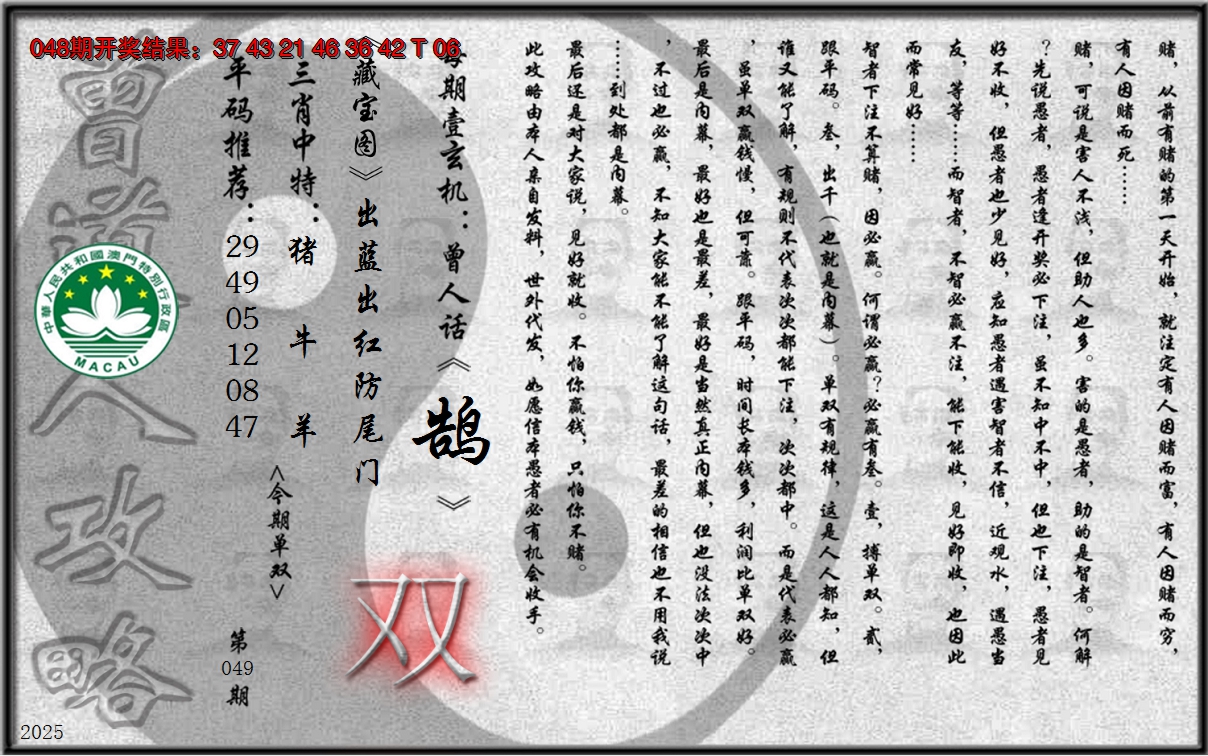 048期开奖结果：37 43 21 46 36 42 T 06
赌，从前有赌的第一天开始，就注定有人因赌而富，有人因赌而穷，
有人因赌而死……
赌，可说是害人不浅，但助人也多。害的是愚者，助的是智者。何解
？先说愚者，愚者逢开奖必下注，虽不知中不中，但也下注，愚者见
好不收，但愚者也少见好，应知愚者遇害智者不信，近观水，遇愚当
友，等等……而智者，不智必赢不注，能下能收，见好即收，也因此
而常见好……
智者下注不算赌，因必赢。何谓必赢？必赢有叁。壹，搏单双。贰，
跟平码。叁，出千（也就是内幕）。单双有规律，这是人人都知，但
谁又能了解，有规则不代表次次都能下注，次次都中。而是代表必赢
，虽单双赢钱慢，但可靠。跟平码，时间长本钱多，利润比单双好。
最后是内幕，最好也是最差，最好是当然真正内幕，但也没法次次中
，不过也必赢，不知大家能不能了解这句话，最差的相信也不用我说
……到处都是内幕。
最后还是对大家说，见好就收。不怕你赢钱，只怕你不赌。
此攻略由本人亲自发料，世外代发，如愿信本愚者必有机会收手。
每期壹玄机：曾人话《鹄》
《藏宝图》出蓝出红防尾门
三肖中特：猪 牛 羊
<今期单双>
双
平码推荐：29 49 05 12 08 47
第049期
曾道人攻略
中華人民共和國澳門特別行政區
MACAU
2025